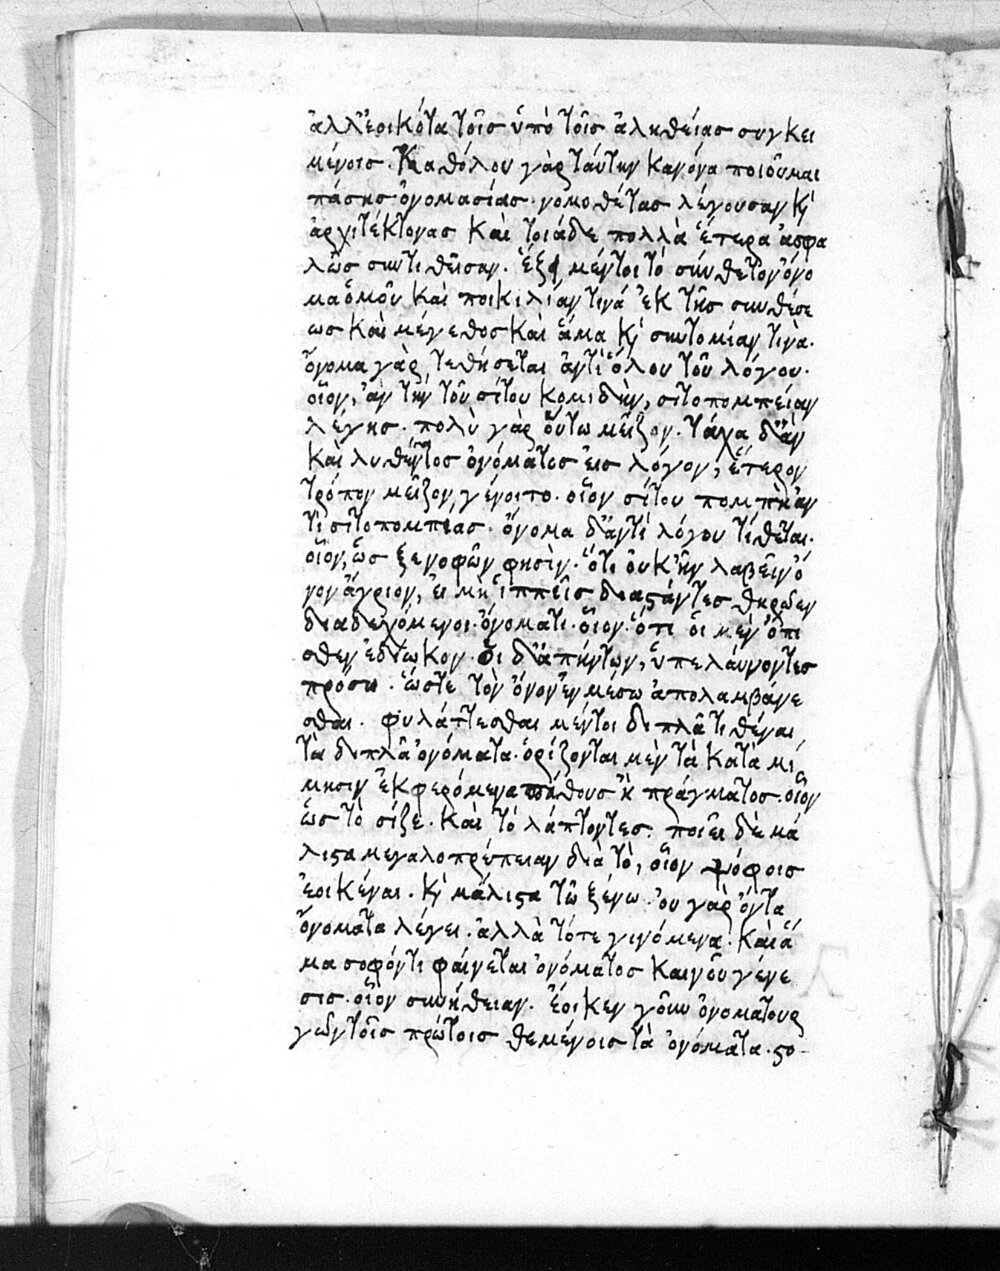 ἀλλ' ἐοικότα τοῖς ὑπὸ τοῖς ἀληθείας συγκει
μένοις. Καθόλου γὰρ ταύτην κανόνα ποιοῦμαι
πάσης ὀνομασίας. νομοθέτας λέγουσαν κ̀
ἀρχιτέκτονας καὶ τοιάδε πολλὰ ἕτερα ἀσφα
λῶς συντιθεῖσαν. ἕξει μέντοι τὸ σύνθετον ὄνο
μα ὁμοῦ καὶ ποικιλίαν τινά ἐκ τῆς συνθέσε
ως καὶ μέγεθος καὶ ἅμα κ̀ συντομίαν τινὰ.
ὄνομα γὰρ τεθήσεται ἀντὶ ὅλου τοῦ λόγου.
οἷον, ἂν τὴν τοῦ σίτου κομιδὴν, σιτοπομπείαν
λέγῃς. πολὺ γὰρ οὕτω μεῖζον. τάχα δ' ἂν
καὶ λυθέντος ὀνόματος εἰς λόγον, ἕτερον
τρόπον μεῖζον γένοιτο. οἷον σίτου πομπὴ ἀν
τὶ σιτοπομπίας. ὄνομα δ' ἀντὶ λόγου τίθεται.
οἷον, ὡς ξενοφῶν φησὶν. ὅτι οὐκ ἦν λαβεῖν ὄ
νον ἄγριον, εἰ μὴ ἱππεῖς διαστάντες θηρῷεν
διαδεχόμενοι. ὀνόματι. οἷον. ὅτι οἱ μὲν ὄπι
σθεν ἐδίωκον. οἱ δ' ἀπήντων, ὑπελαύνοντες
πρόσω. ὥστε τὸν ὄνον ἐν μέσω ἀπολαμβάνε
σθαι. φυλάττεσθαι μέντοι διπλᾶ τιθέναι
τὰ διπλᾶ ὀνόματα. ὁρίζονται μὲν τὰ κατὰ μί
μησιν ἐκφερόμενα πάθους ἢ πράγματος. οἷον
ὡς τὸ σίζε. καὶ τὸ λάπτοντες. ποιεῖ δὲ μά
λιστα μεγαλοπρέπειαν διὰ τὸ, οἷον ψόφοις
ἐοικέναι. κ̀ μάλιστα τῶ ξένω. οὐ γὰρ ὄντα
ὀνόματα λέγει. ἀλλὰ τότε γινόμενα. καὶ ἅ
μα σοφόν τι φαίνεται ὀνόματος καινοῦ γένε
σις. οἷον συνήθειαν. ἔοικεν γοῦν ὀνοματουρ
γῶν τοῖς πρώτοις θεμένοις τὰ ὀνόματα. στο-